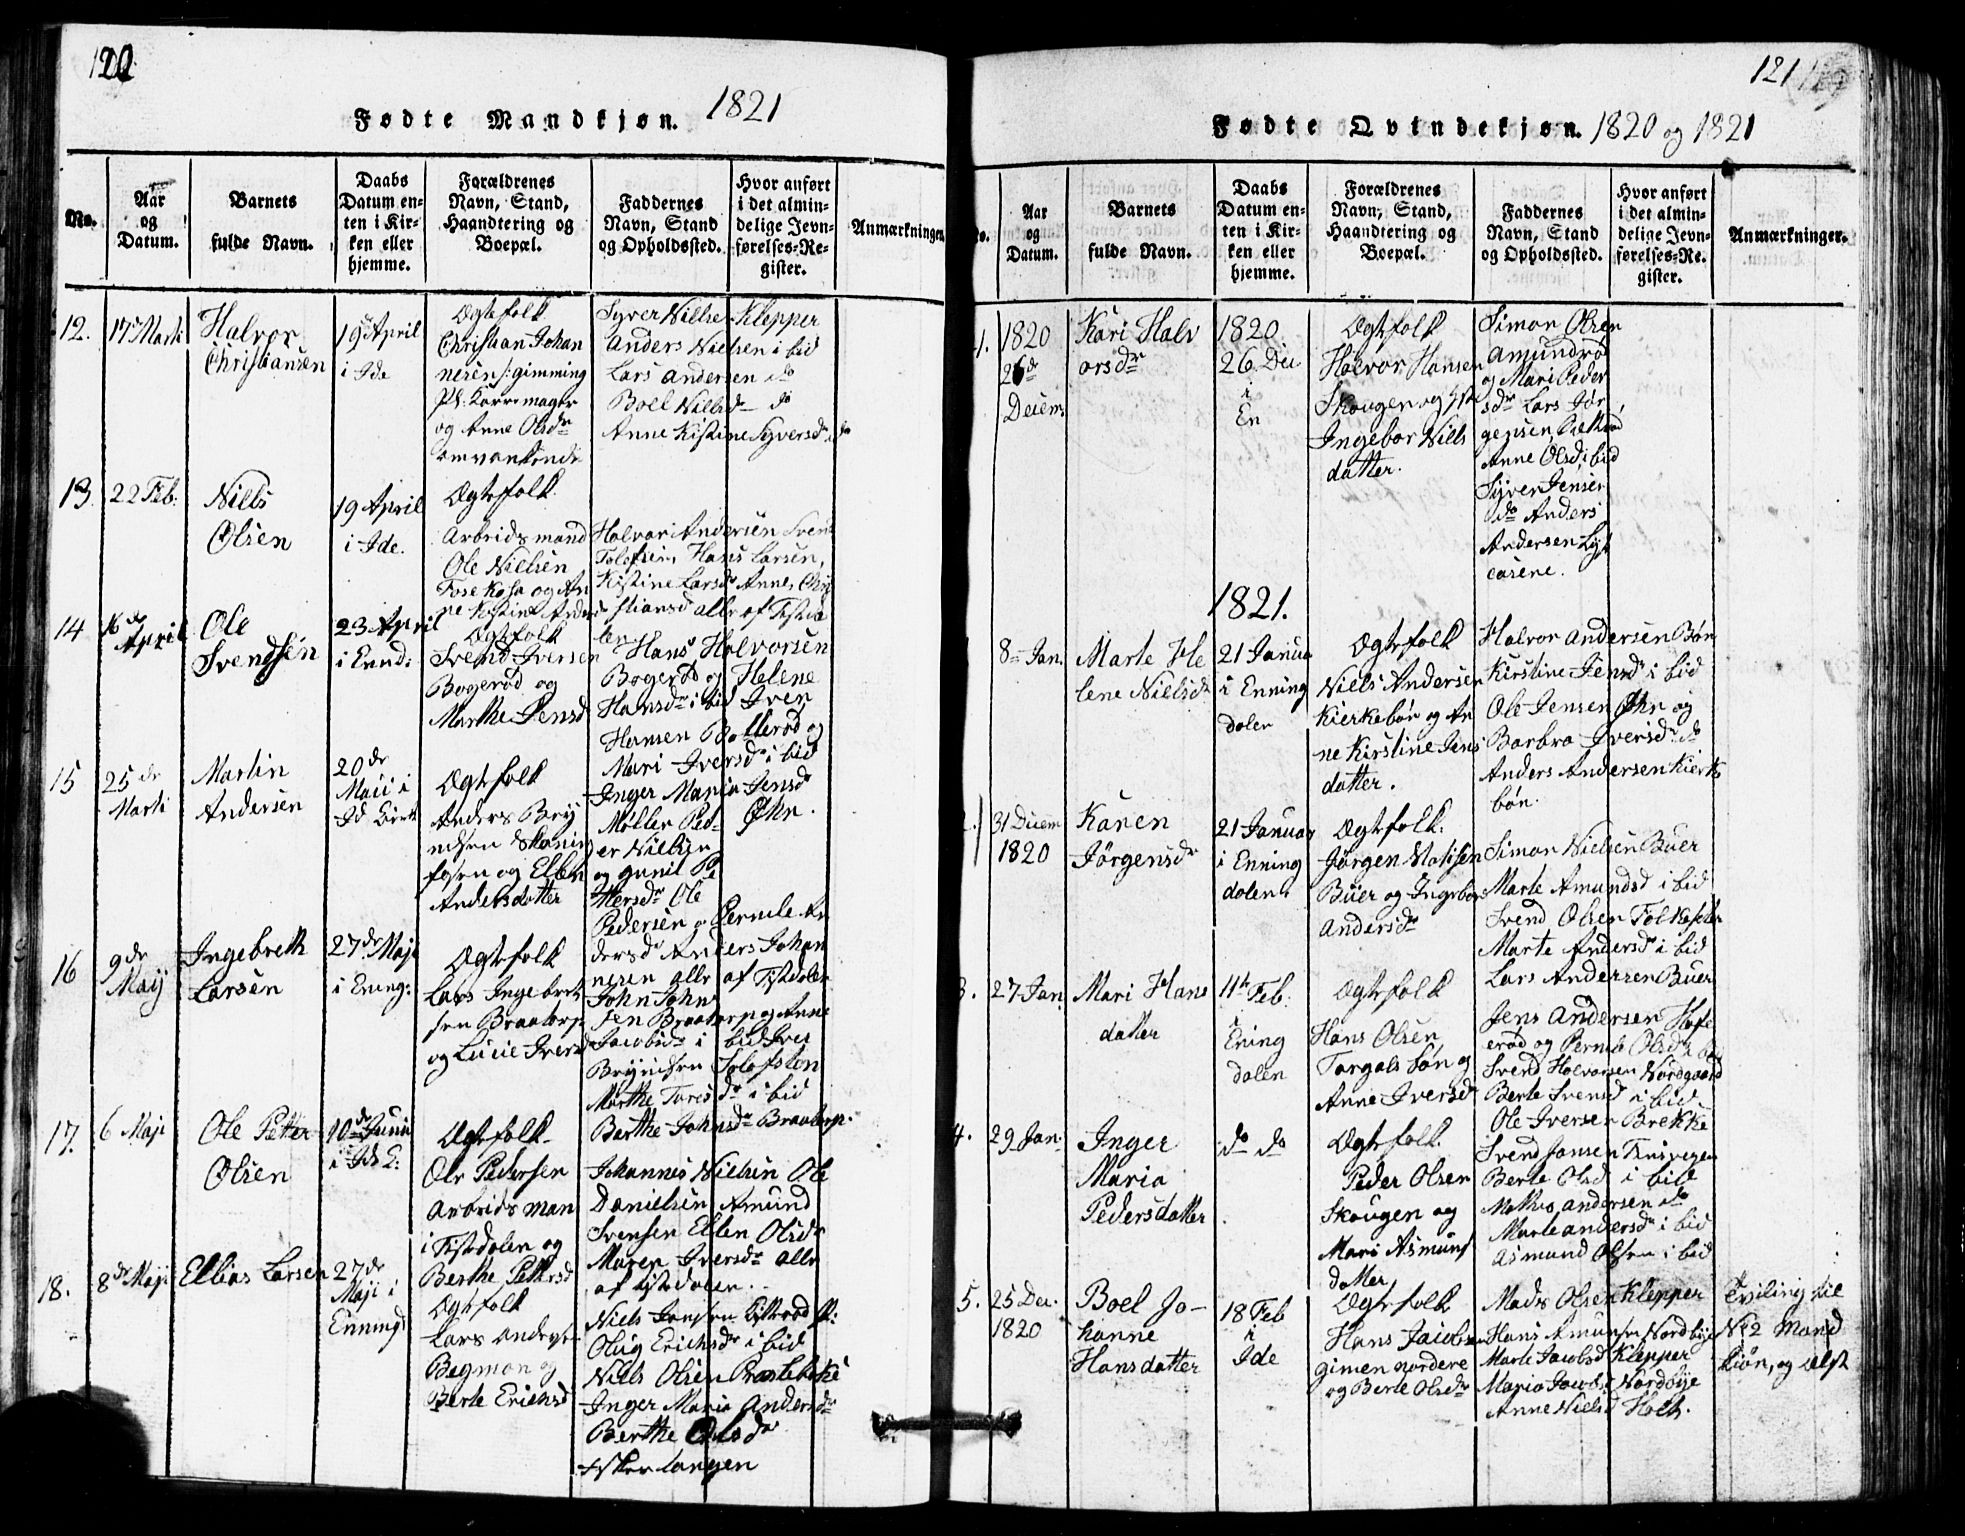 120
Fødte Mandkjøn. 1821
No.
Aar og Datum.
Barnets fulde Navn.
Daabs Datum enten i Kirken eller hjemme.
Forældrenes Navn, Stand, Haandtering og Boepæl.
Faddernes Navn, Stand og Opholdssted.
Hvor anført i det almindelige Jevnførelses-Register.
Anmærkninger.
12.
17de Marti
Halvor
Christiansen
19 April
i Ide
Ægtefolk
Christian Johan
nesen /: gimming
Pl: Korremager
og Anne Olsdr
omvankende
Syver Nillse Klepper
Anders Nielsen i bid
Lars Andersen do
Boel Nillsdr do
Anne Kistine Syversdr do
13.
22 Feb.
Niels
Olsen
19 April
i Ide.
Ægtefolk
Arbeidsmand
Ole Nielsen
og An
ne Kistine Andersd
Halvor Andersen Svend
Tolofsen, Hans Larsen,
Kistine Larsdr Anne Chri
stiansd alle af Tisteda
len
14
16de
April
Ole
Svendsen
23 April
i Ennd:
Ægtefolk
Svend Iversen
Bogerød og
Marthe Jensd
Hans Halvorsen
Bogerød og Helene
Hansdr i bid Iver
Hansen Bollerød og
Mari Iversdr i bid
Inger Maria Jensdr
Øhn.
15
25de
Marti
Martin
Andersen
20de
Maii i
Id Kirk
Ægtefolk
Anders Bry
ndsen Skonin
fosen og Ellen
Andersdatter
Møller Ped-
er Nielsen
og Gunil Pe
ttersdr Ole
Pedersen og Pernile An
dersdr Anders Johan
nesen alle af Tistedalen
16
9de
Maij
Ingebreth
Larsen
27de Maji
i Ening:
Ægtefolk
Lars Ingebret
sen Braatorp
og Lucie Iversd
John Johns
sen Braatorp og Anne
Jacobsdr i bid Iver
Bryndsen Tolofsten
Marthe Toresdr i bid
Berthe Johnsdr Braatorp.
17.
6 Maji
Ole Petter
Olsen
10de Junii
i Ids K:
Ægtefolk
Ole Pedersen
Arbeidsman
i Tistedalen og
Berthe Pettersd
Johannes Nielsen Ole
Danielsen Amund
Svensen Ellen Olsdr
Maren Iversdr alle
af Tistedalen.
18.
8de Maji
Ellias Larsen
27de
Maji i
Enningd
Ægtefolk
Lars Anders-
Begman og
Berte Erichsd
Niels Jensen
Oliig Erichsdr i bid
Nills Olsen Prestebakke
Inger Maria Andersdr
Berthe Olsdr

121
Fødte Qvindekjøn. 1820 og 1821
No.
Aar og Datum.
Barnets fulde Navn.
Daabs Datum enten i Kirken eller hjemme.
Forældrenes Navn, Stand, Haandtering og Boepæl.
Faddernes Navn, Stand og Opholdssted.
Hvor anført i det almindelige Jevnførelses-Register.
Anmærkninger.
1820
26de
Decem
Kari Halv
orsdr
1820
26 Dec.
i
En
Ægtefolk
Halvor Hansen
Skougen og
Ingebor Nills
datter.
Simon Olsen
Amundrød
og Mari Peder
sdr Lars Jør
gensen,
Anne Olsd i bid
Syver Jensen
do Anders
Andersen
1821.
8de Jan.
Marte He
lene Nielsdr
21 Janua
i Enning
dalen
Ægtefolk
Niels Andersen
Kierkebøn og An
ne Kirstine Jens
datter.
Halvor Andersen Bøn
Kirstine Jensdr i bid
Ole Jensen Øhn og
Barbra Iversdr do
Anders Andersen Kierke
bøn.
2.
31 Decem
1820
Karen
Jørgensdr
21 Januar
i Enning
dalen
Ægtefolk.
Jørgen Matisen
Buer og Ingebor
Andersdr
Simon Nielsen Buer
Marte Amundsd i bid
Svend Olsen
Marte Andersd i bid
Lars Andersen Buer
3.
27 Jan
Mari Hans
datter
11te Feb.
i
Ening
dalen
Ægtefolk
Hans Olsen
og
Anne Iversdr
Jens Andersen
og Pernile Olsdr i bid
Svend Halvorsen Nordgaard
Berte Svensd i bid
Ole Iversen Brekke
4.
29 Jan.
Inger
Maria
Pedersdatter
do do
Ægtefolk.
Peder Olsen
Skougen og
Mari Asmuns
datter
Svend Jansen
Berte Olsd i bid
Mathis Andersen do
Marte Andersdr i bid
Asmund Olsen i bid
5.
25 Dec.
1820
Boel Jo-
hanne
Hansdatter
18 Feb
i
Ide
Ægtefolk
Hans Jacobsen
gimen nordere
og Berte Olsdr
Mads Olsen Klepper
Hans Amunsen Nordbye
Marte Jacobsd Klepper
Maria Jacobsd Nordbye
Anne Nielsd Holt.
Tviling til
No 2 Mand
kiøn, og ælst